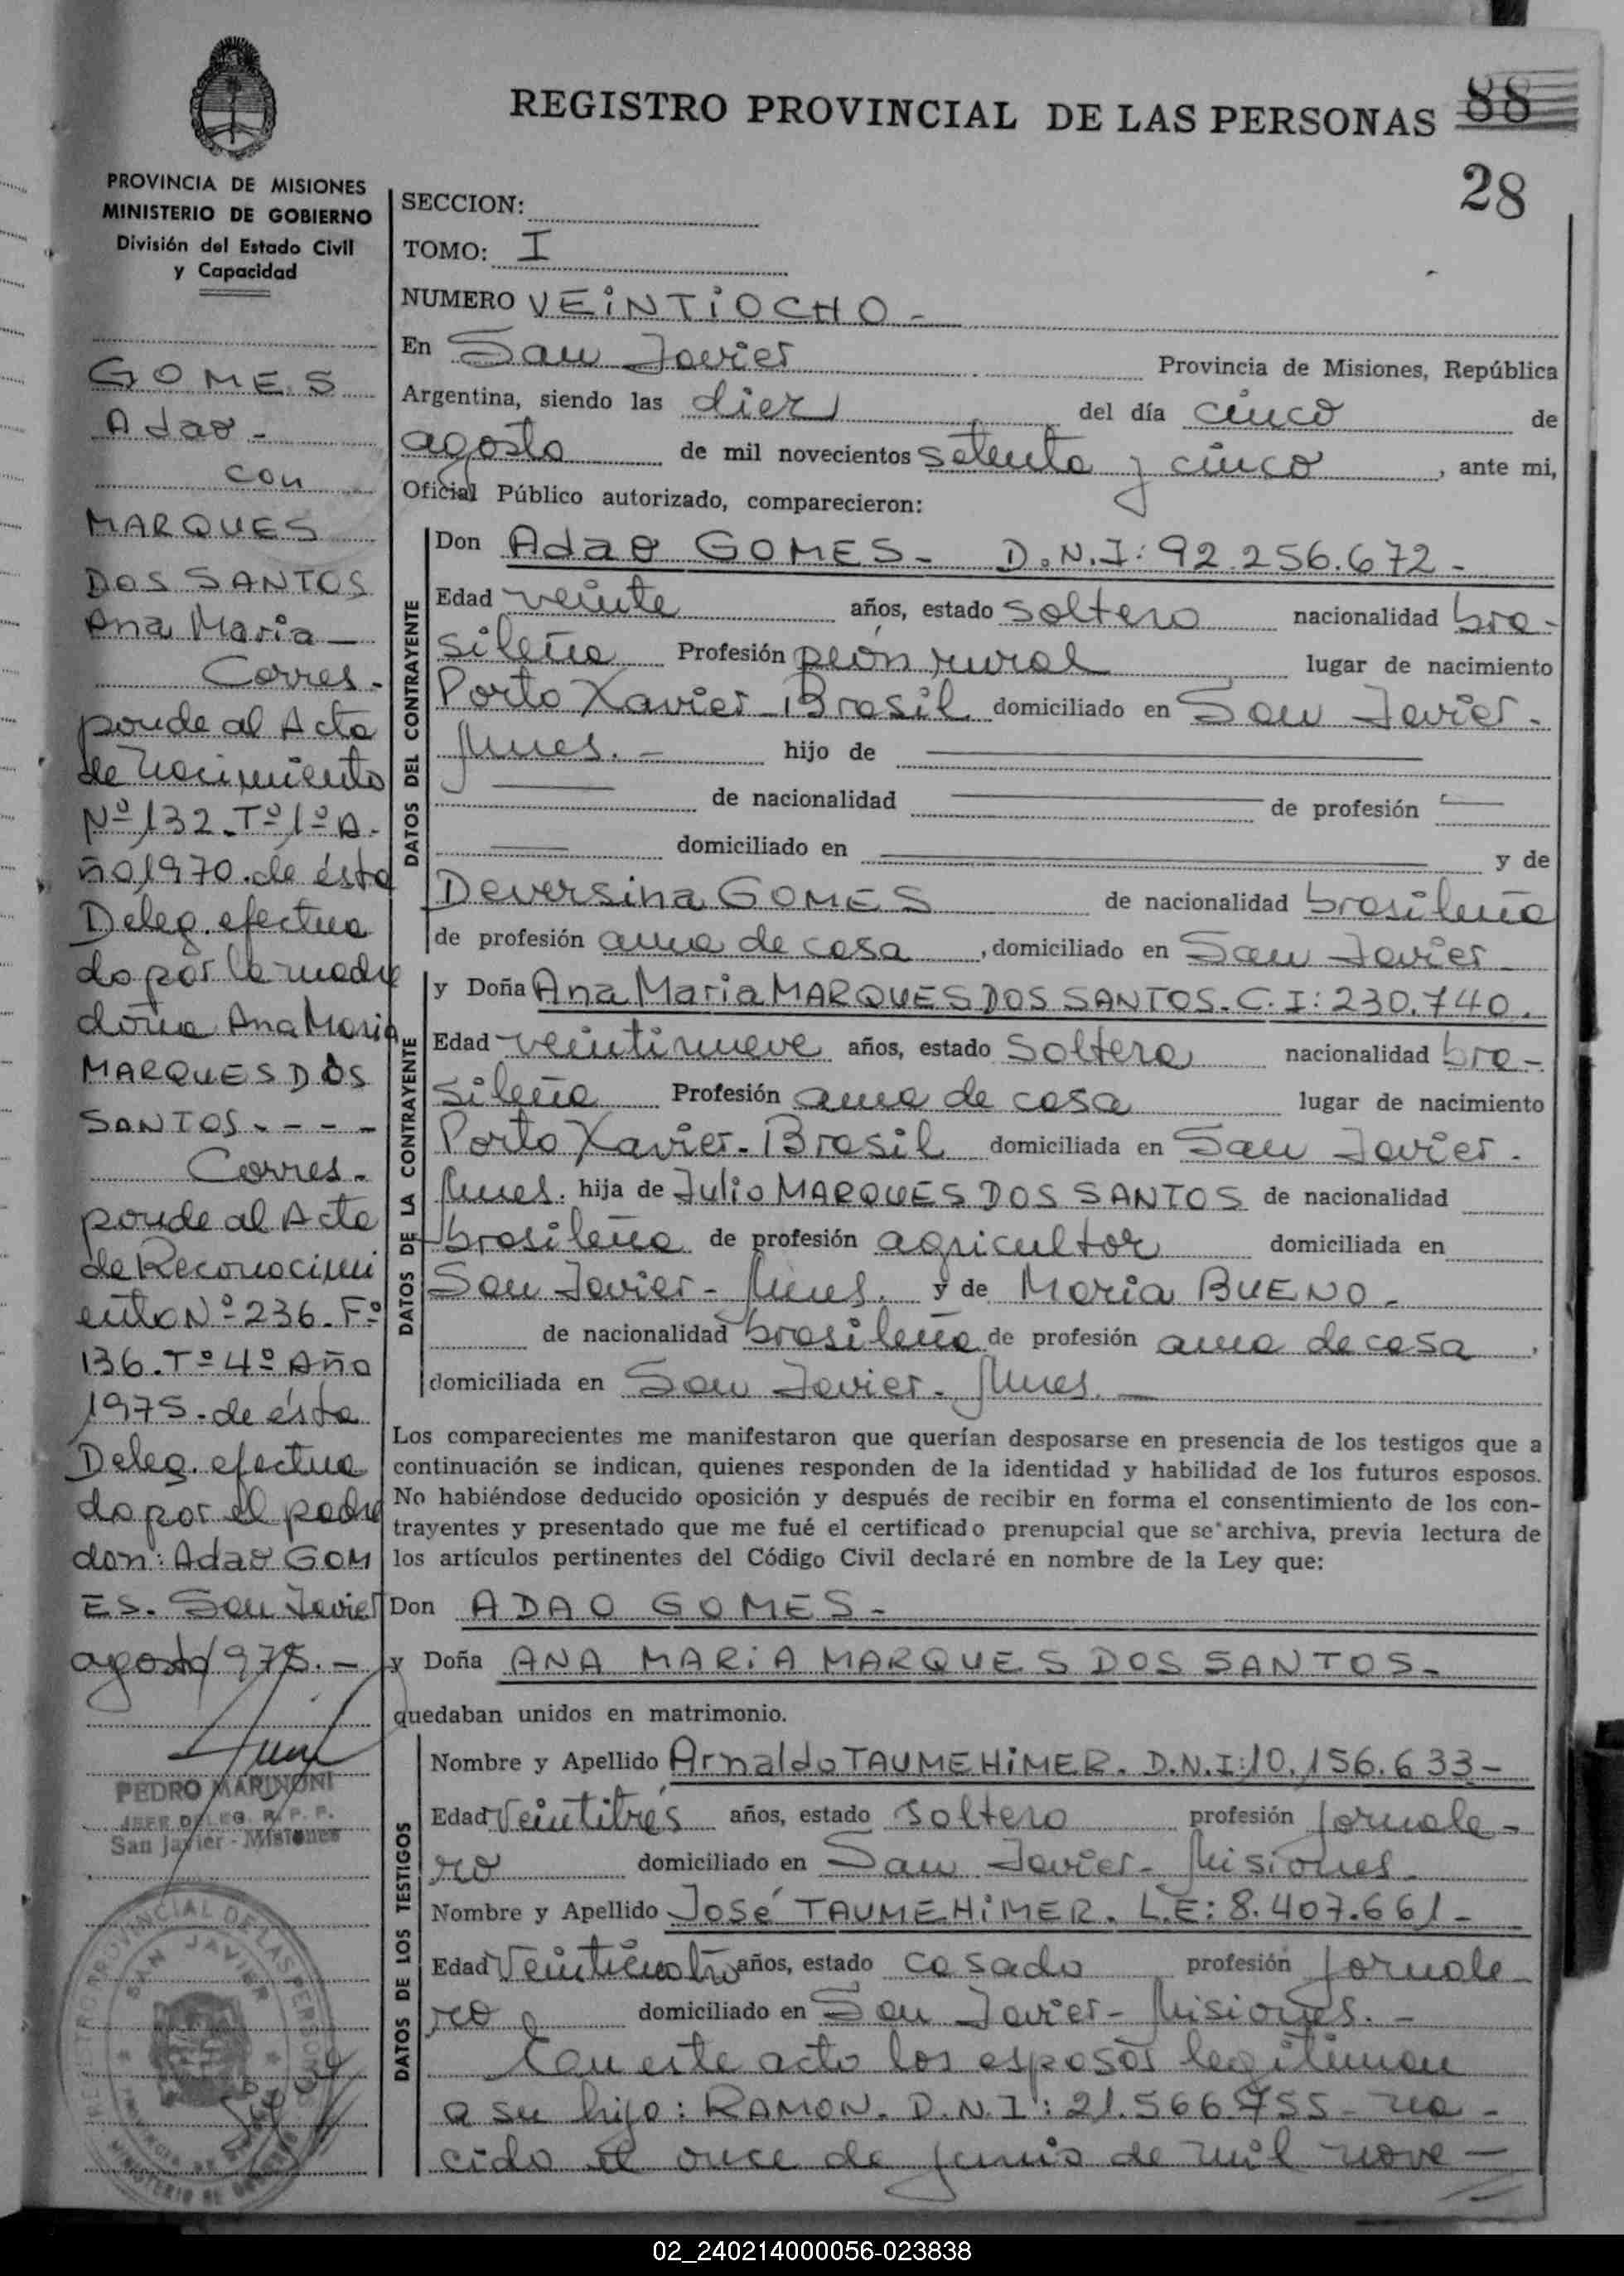 REGISTRO PROVINCIAL DE LAS PERSONAS 88
28
PROVINCIA DE MISIONES
MINISTERIO DE GOBIERNO
División del Estado Civil
y Capacidad
GOMES
Adao -
con
MARQUES
DOS SANTOS
Ana Maria -
Corres-
ponde al Acta
de nacimiento
Nº 132. Tº 1º A-
ño 1970. de ésta
Deleg. efectua
do por la madre
doña Ana Maria
MARQUES DOS
SANTOS - - - -
Corres-
ponde al Acta
de Reconocimi
ento Nº 236. Fº
136. Tº 4º Año
1975. de ésta
Deleg. efectua
do por el padre
don: Adao GOM
ES. San Javier
agosto 1975. -
PEDRO MARINONI
JEFE DELEG. R. P. P.
San Javier - Misiones
REGISTRO PROVINCIAL DE LAS PERSONAS
SAN JAVIER
MINISTERIO DE GOBIERNO
SECCION:
TOMO: I
NUMERO VEINTIOCHO -
En San Javier Provincia de Misiones, República
Argentina, siendo las diez del día cinco de
agosto de mil novecientos setenta y cinco, ante mi,
Oficial Público autorizado, comparecieron:
DATOS DEL CONTRAYENTE
Don Adao GOMES - D.N.I: 92.256.672 -
Edad veinte años, estado soltero nacionalidad bra-
sileña Profesión peón rural lugar de nacimiento
Porto Xavier - Brasil domiciliado en San Javier -
Mnes. - hijo de
de nacionalidad de profesión
domiciliado en y de
Deversina GOMES de nacionalidad brasileña
de profesión ama de casa, domiciliado en San Javier
DATOS DE LA CONTRAYENTE
y Doña Ana Maria MARQUES DOS SANTOS - C.I: 230.740.
Edad veintinueve años, estado soltera nacionalidad bra-
sileña Profesión ama de casa lugar de nacimiento
Porto Xavier - Brasil domiciliada en San Javier -
Mnes. hija de Julio MARQUES DOS SANTOS de nacionalidad
brasileña de profesión agricultor domiciliada en
San Javier - Mnes. y de Maria BUENO -
de nacionalidad brasileña de profesión ama de casa,
domiciliada en San Javier - Mnes. -
Los comparecientes me manifestaron que querían desposarse en presencia de los testigos que a
continuación se indican, quienes responden de la identidad y habilidad de los futuros esposos.
No habiéndose deducido oposición y después de recibir en forma el consentimiento de los con-
trayentes y presentado que me fué el certificado prenupcial que se archiva, previa lectura de
los artículos pertinentes del Código Civil declaré en nombre de la Ley que:
Don ADAO GOMES -
y Doña ANA MARIA MARQUES DOS SANTOS -
quedaban unidos en matrimonio.
DATOS DE LOS TESTIGOS
Nombre y Apellido Arnaldo TAUMEHIMER. D.N.I: 10.156.633 -
Edad Veintitrés años, estado soltero profesión jornale-
ro domiciliado en San Javier - Misiones
Nombre y Apellido José TAUMEHIMER. L.E: 8.407.661 -
Edad Veinticuatro años, estado casado profesión jornale
ro domiciliado en San Javier - Misiones. -
Con este acto los esposos legitiman
a su hijo: RAMON. D.N.I: 21.566.755 - na-
cido el once de junio de mil nove -
02_240214000056-023838